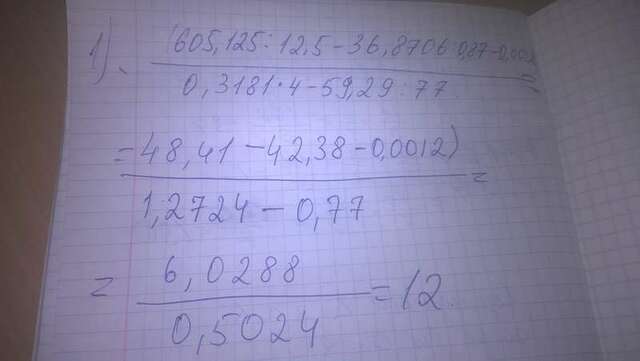 1). (605,125:12,5-36,8706:0,87-0,0012
0,3181·4-59,29:77
=48,41-42,38-0,0012) =
1,2724-0,77
= 6,0288 = 12.
0,5024